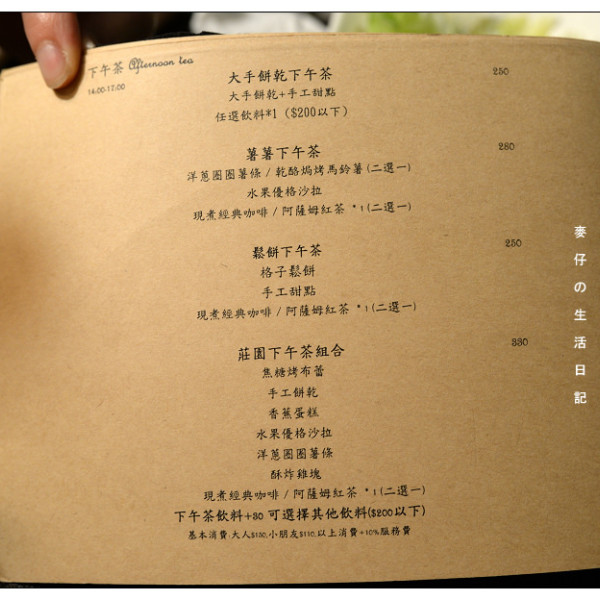 下午茶 Afternoon tea
14:00-17:00
大手餅乾下午茶 250
大手餅乾+手工甜點
任選飲料*1 ($200以下)
薯薯下午茶 280
洋蔥圈圈薯條 / 乾酪焗烤馬鈴薯(二選一)
水果優格沙拉
現煮經典咖啡 / 阿薩姆紅茶 *1(二選一)
鬆餅下午茶 250
格子鬆餅
手工甜點
現煮經典咖啡 / 阿薩姆紅茶 *1(二選一)
莊園下午茶組合 330
焦糖烤布蕾
手工餅乾
香蕉蛋糕
水果優格沙拉
洋蔥圈圈薯條
酥炸雞塊
現煮經典咖啡 / 阿薩姆紅茶 *1(二選一)
下午茶飲料+30 可選擇其他飲料($200以下)
基本消費:大人$150,小朋友$110,以上消費+10%服務費
麥仔の生活日記